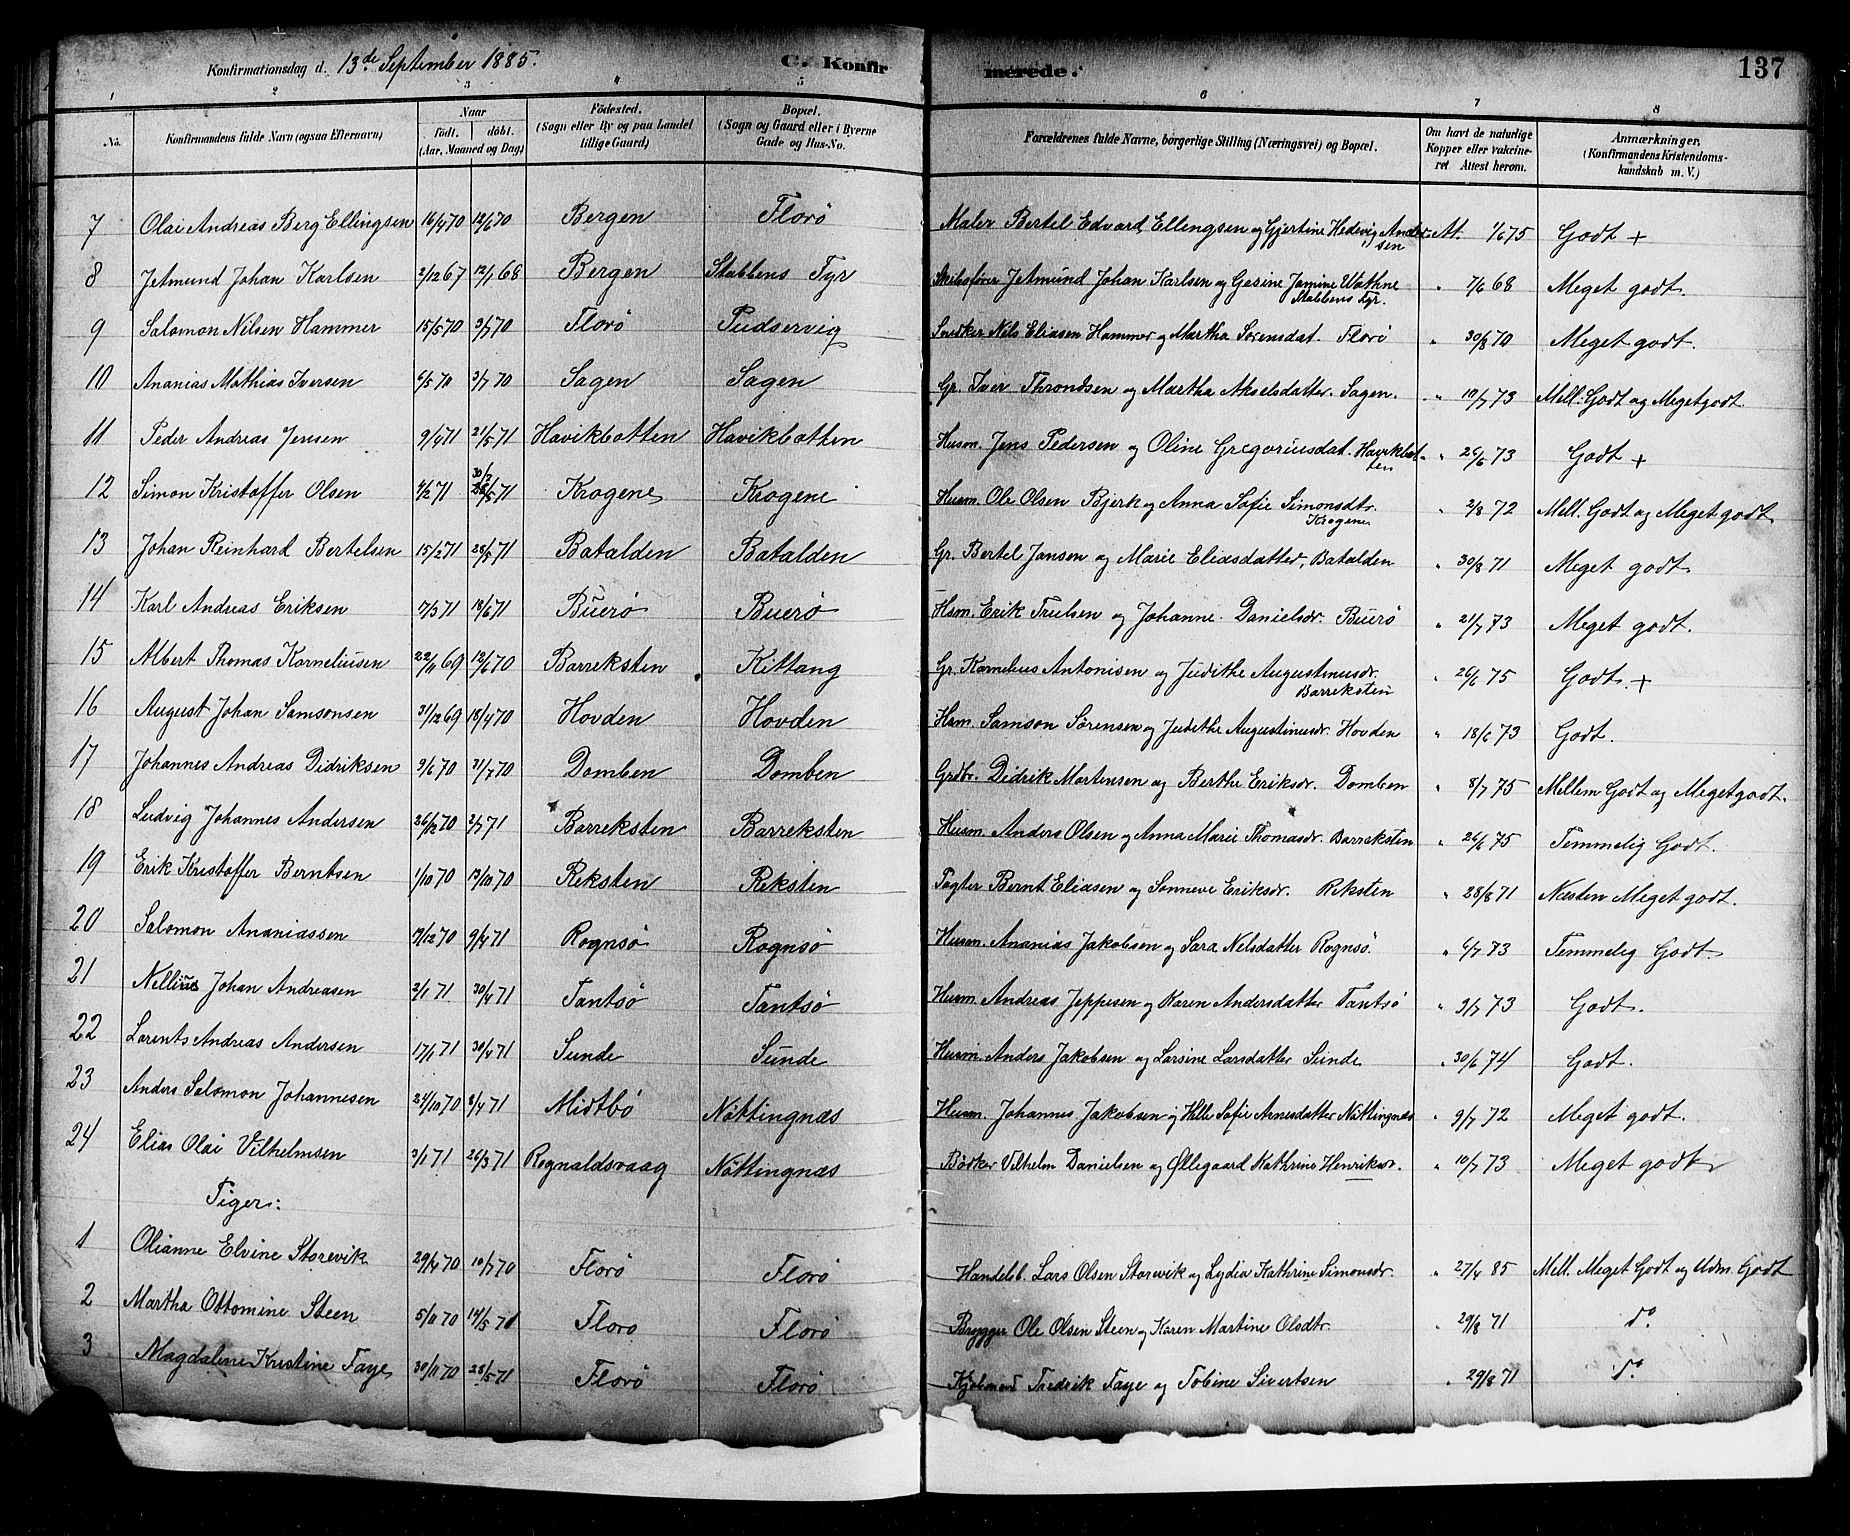 Konfirmationsdag d. 13de September 1885. C. Konfirmerede. 137
1 2 3 4 5 6 7 8
No. Konfirmandens fulde Navn (ogsaa Efternavn) Naar født. døbt. (Aar, Maaned og Dag) Fødested. (Sogn eller By og paa Landet tillige Gaard) Bopæl. (Sogn og Gaard eller i Byerne Gade og Hus-No. Forældrenes fulde Navne, borgerlige Stilling (Næringsvei) og Bopæl. Om havt de naturlige Kopper eller vakcineret Attest herom. Anmærkninger. (Konfirmandens Kristendomskundskab m. V.)
7 Olai Andreas Berg Ellingsen 16/4 70 12/6 70 Bergen Florö Maler Bertel Edvard Ellengsen og Gjertine Hedevig Andersen At. 1/6 75 Godt +
8 Jetmund Johan Karlsen 2/12 67 12/1 68 Bergen Stabbens Fyr Skibsfører Jetmund Johan Karlsen og Gesine Jamine Wathne Stabbens Fyr. " 7/6 68 Meget godt.
9 Salomon Nilsen Hammer 15/5 70 3/7 70 Florö Pudservig Snedker Nils Eliasen Hammer og Martha Sørensdat. Florö " 30/8 70 Meget godt.
10 Ananias Mathias Iversen 6/5 70 3/7 70 Sagen Sagen Gr. Iver Throndsen og Martha Akselsdatter. Sagen. " 10/7 73 Mell. Godt og Megetgodt
11 Peder Andreas Jensen 9/4 71 21/5 71 Havikbotten Havikbotten Husm. Jens Pedersen og Oline Gregoriusdat. Havikbotten " 26/6 73 Godt +
12 Simon Kristoffer Olsen 4/2 71 28/5 71 Krogene Krogene Husm. Ole Olsen Bjerk og Anna Sofie Simonsdtr. Krogene " 2/8 72 Mell. Godt og Meget godt
13 Johan Reinhard Bertelsen 15/2 71 28/5 71 Batalden Batalden Gr. Bertel Jansen og Marie Eliasdatter, Batalden " 30/8 71 Meget godt
14 Karl Andreas Eriksen 7/3 71 18/6 71 Buerö Buerö Hsm. Erik Truelsen og Johanne Danielsdr. Buerö " 21/7 73 Meget godt.
15 Albert Thomas Korneliusen 22/11 69 12/6 70 Barreksten Kittang Gr. Kornelius Antonisen og Judithe Augustinusdr. Barreksten " 26/6 75 Godt. +
16 August Johan Samsonsen 31/12 69 18/4 70 Hovden Hovden Hsm. Samson Sørensen og Judithe Augustinusdr. Hovden " 18/6 73 Godt.
17 Johannes Andreas Didriksen 9/6 70 31/7 70 Domben Domben Grdbr. Didrik Mortensen og Berthe Eriksdr. Domben " 8/7 75 Mellem Godt og Megetgodt.
18 Ludvig Johannes Andersen 26/12 70 2/7 71 Barreksten Barreksten Husm. Anders Olsen og Anna Marie Thomasdr. Barreksten " 26/6 75 Temmelig Godt.
19 Erik Kristoffer Berntsen 1/10 70 19/10 70 Reksten Reksten Fogter Bernt Eliasen og Sonneve Eriksdr. Reksten " 28/8 71 Næsten Meget godt.
20 Salomon Ananiassen 17/12 70 9/4 71 Rognsö Rognsö Husm. Ananias Jakobsen og Sara Nelsdatter Rognsö. " 6/7 73 Temmelig Godt.
21 Nellius Johan Andreasen 2/1 71 30/4 71 Tantsö Tantsö Husm. Andreas Jeppesen og Karen Andersdatter Tantsö " 3/7 73 Godt.
22 Larents Andreas Andersen 17/1 71 30/4 71 Sunde Sunde Husm. Anders Jakobsen og Larsine Larsdatter Sunde " 30/6 74 Godt.
23 Anders Salomon Johannesen 24/10 70 8/4 71 Midtbö Nöttingnæs Husm. Johannes Jakobsen og Helle Sofie Arnesdatter Nöttingnæs " 9/7 72 Meget godt.
24 Elias Olai Vilhelmsen 3/1 71 26/3 71 Rognaldsvaag Nöttingnæs Bödker Vilhelm Danielsen og Øllegaard Kathrine Henriksdr. " 10/7 73 Meget godt
Piger:
1 Olianne Elvine Storevik 29/4 70 10/7 70 Florö Florö Handelsb. Lars Olsen Storevik og Lydia Kathrine Simonsdr. " 27/4 85 Mell. Meget Godt og Udm. Godt
2 Martha Ottomine Steen 5/11 70 14/5 71 Floro Florö Brygger Ole Olsen Steen og Karen Martine Olsdtr. " 29/8 71 do
3 Magdalene Kristine Faye 30/11 70 28/5 71 Florö Florö Fredrik Faye og Tobine Sivertsen " 29/8 71 do